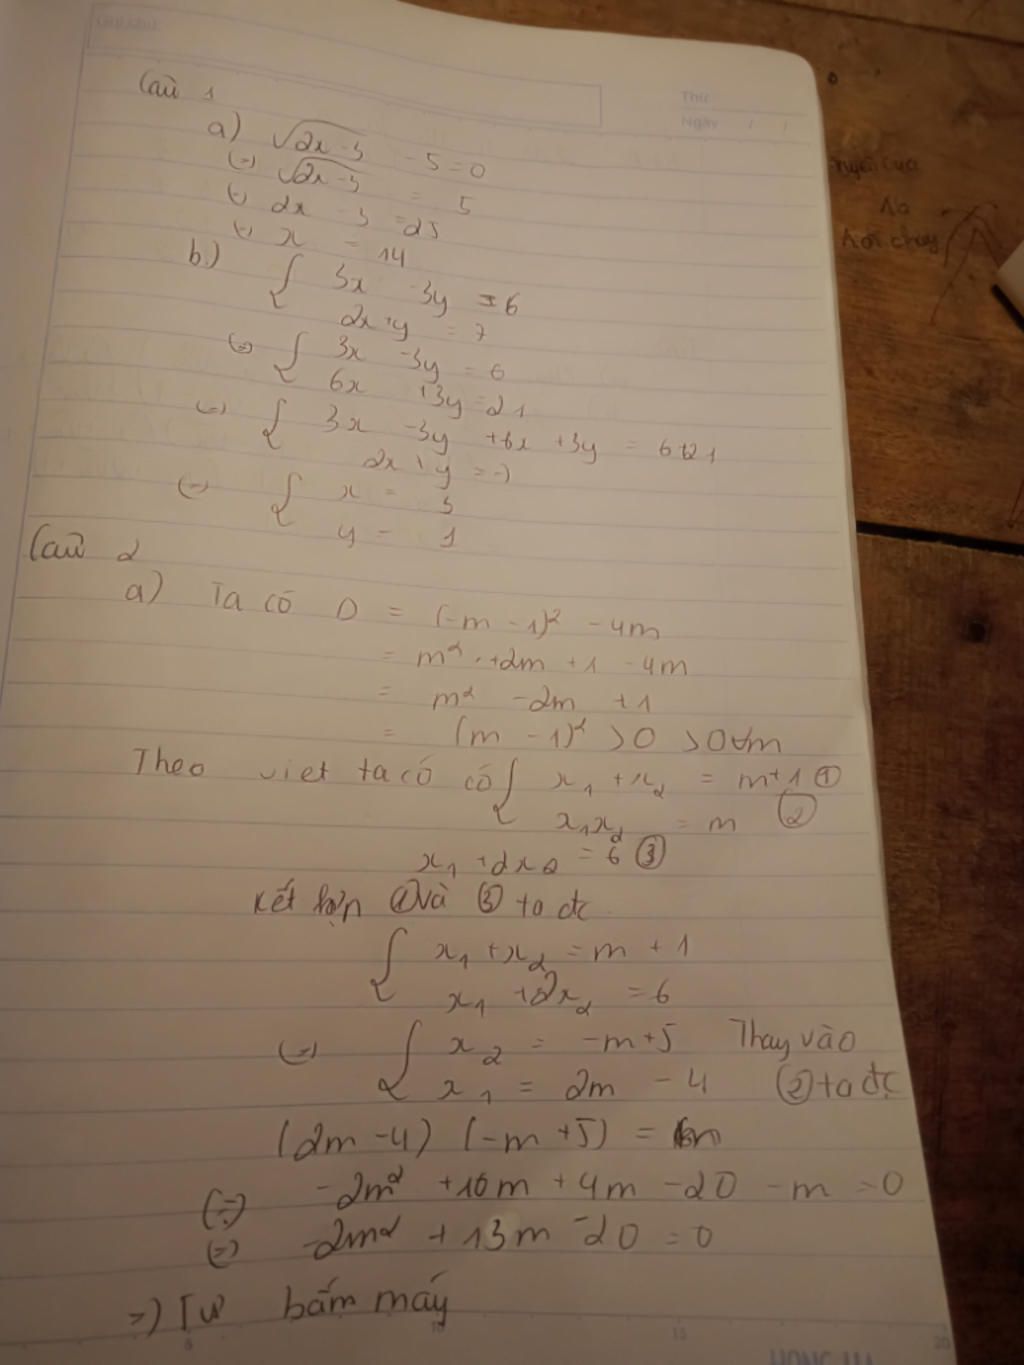 Ghi chú:
Thứ
Ngày / /
Câu 1
a) √2x-3 - 5 = 0
(=) √2x-3 = 5
(=) 2x - 3 = 25
(=) x = 14
b.) { 3x - 3y = 6
2x + y = 7
(=) { 3x - 3y = 6
6x + 3y = 21
(=) { 3x - 3y + 6x + 3y = 6+21
2x + y = 7
(=) { x = 3
y = 1
Câu 2
a) Ta có D = (-m - 1)² - 4m
= m² + 2m + 1 - 4m
= m² - 2m + 1
= (m - 1)² >0 >0∀m
Theo viet ta có có { x₁ + x₂ = m+1 ①
x₁x₂ = m ②
x₁ + 2x₂ = 6 ③
Kết hợp ① và ③ ta đc
{ x₁ + x₂ = m + 1
x₁ + 2x₂ = 6
(=) { x₂ = -m+5 Thay vào
x₁ = 2m - 4 ② ta đc
(2m-4) (-m+5) = m
(=) -2m² + 10m + 4m - 20 - m = 0
(=) -2m² + 13m - 20 = 0
=) Tự bấm máy
5 10 15 20